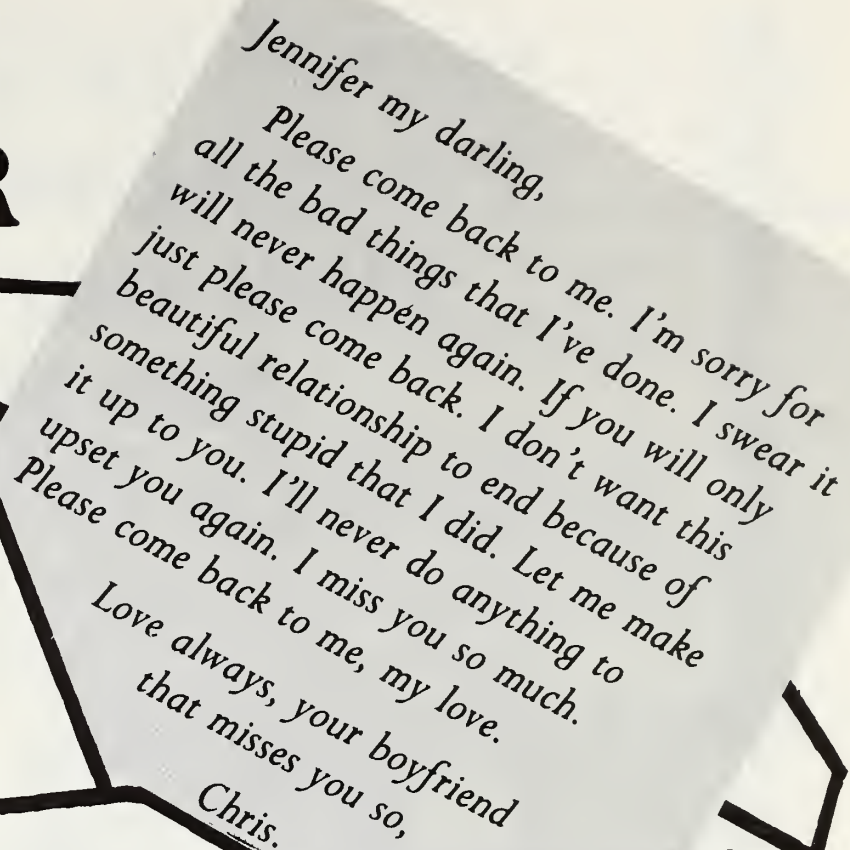 Jennifer my darling,
Please come back to me. I'm sorry for
all the bad things that I've done. I swear it
will never happen again. If you will only
just please come back. I don't want this
beautiful relationship to end because of
something stupid that I did. Let me make
it up to you. I'll never do anything to
upset you again. I miss you so much.
Please come back to me, my love.
Love always, your boyfriend
that misses you so,
Chris.